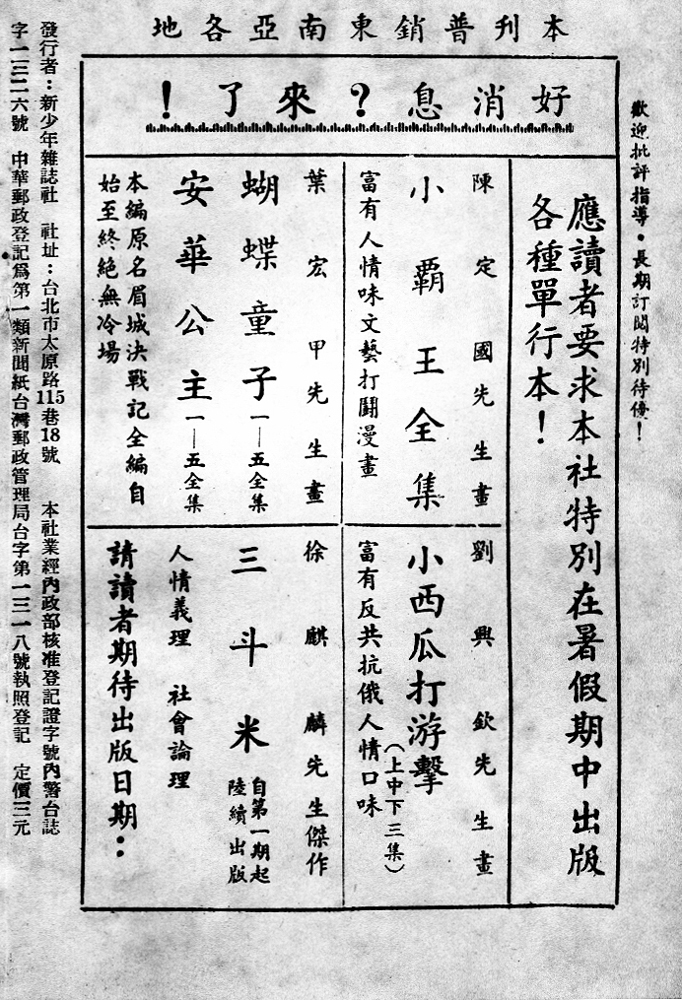 本刊普銷東南亞各地
歡迎批評指導・長期訂閱特別待優！
好消息？來了！
應讀者要求本社特別在暑假期中出版
各種單行本！
陳定國先生畫
小霸王全集
富有人情味文藝打鬪漫畫
葉宏甲先生畫
蝴蝶童子一—五全集
安華公主一—五全集
本編原名眉城決戰記全編自
始至終絕無冷場
劉興欽先生畫
小西瓜打游擊
（上中下三集）
富有反共抗俄人情口味
徐麒麟先生傑作
三斗米
自第一期起
陸續出版
人情義理 社會論理
請讀者期待出版日期：
發行者：新少年雜誌社 社址：台北市太原路115巷18號 本社業經內政部核准登記證字號內警台誌
字一三二六號 中華郵政登記爲第一類新聞紙台灣郵政管理局台字第一三一八號執照登記 定價三元